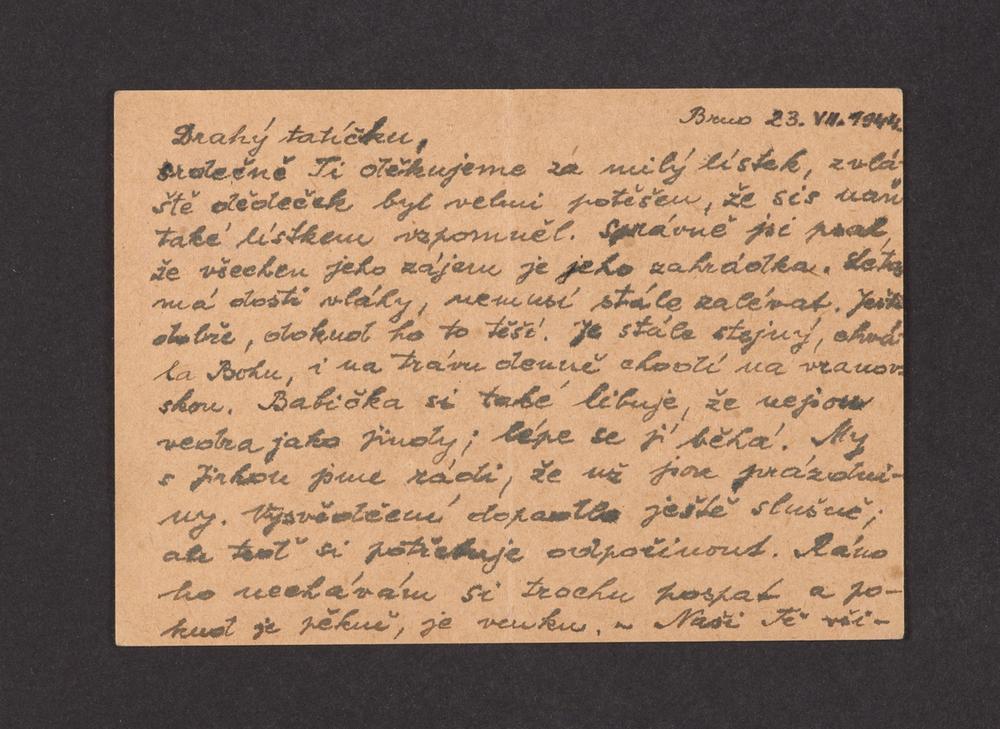 Brno 23. VII. 1944
Drahý tatíčku,
srdečně Ti děkujeme za milý lístek, zvlá-
ště dědeček byl velmi potěšen, že sis naň
také lístkem vzpomněl. Správně jsi psal,
že všechen jeho zájem je jeho zahrádka. Letos
má dosti vláhy, nemusí stále zalévat. Ještě
dobře, dokud ho to těší. Je stále stejný, chvá-
la Bohu, i na trávu denně chodí na vranov-
skou. Babička si také libuje, že nejsou
vedra jako jindy; lépe se jí běhá. My
s Jirkou jsme rádi, že už jsou prázdni-
ny. Vysvědčení dopadlo ještě slušně;
ale teď si potřebuje odpočinout. Ráno
ho nechávám si trochu pospat a po-
kud je pěkně, je venku. – Naši Tě vši-